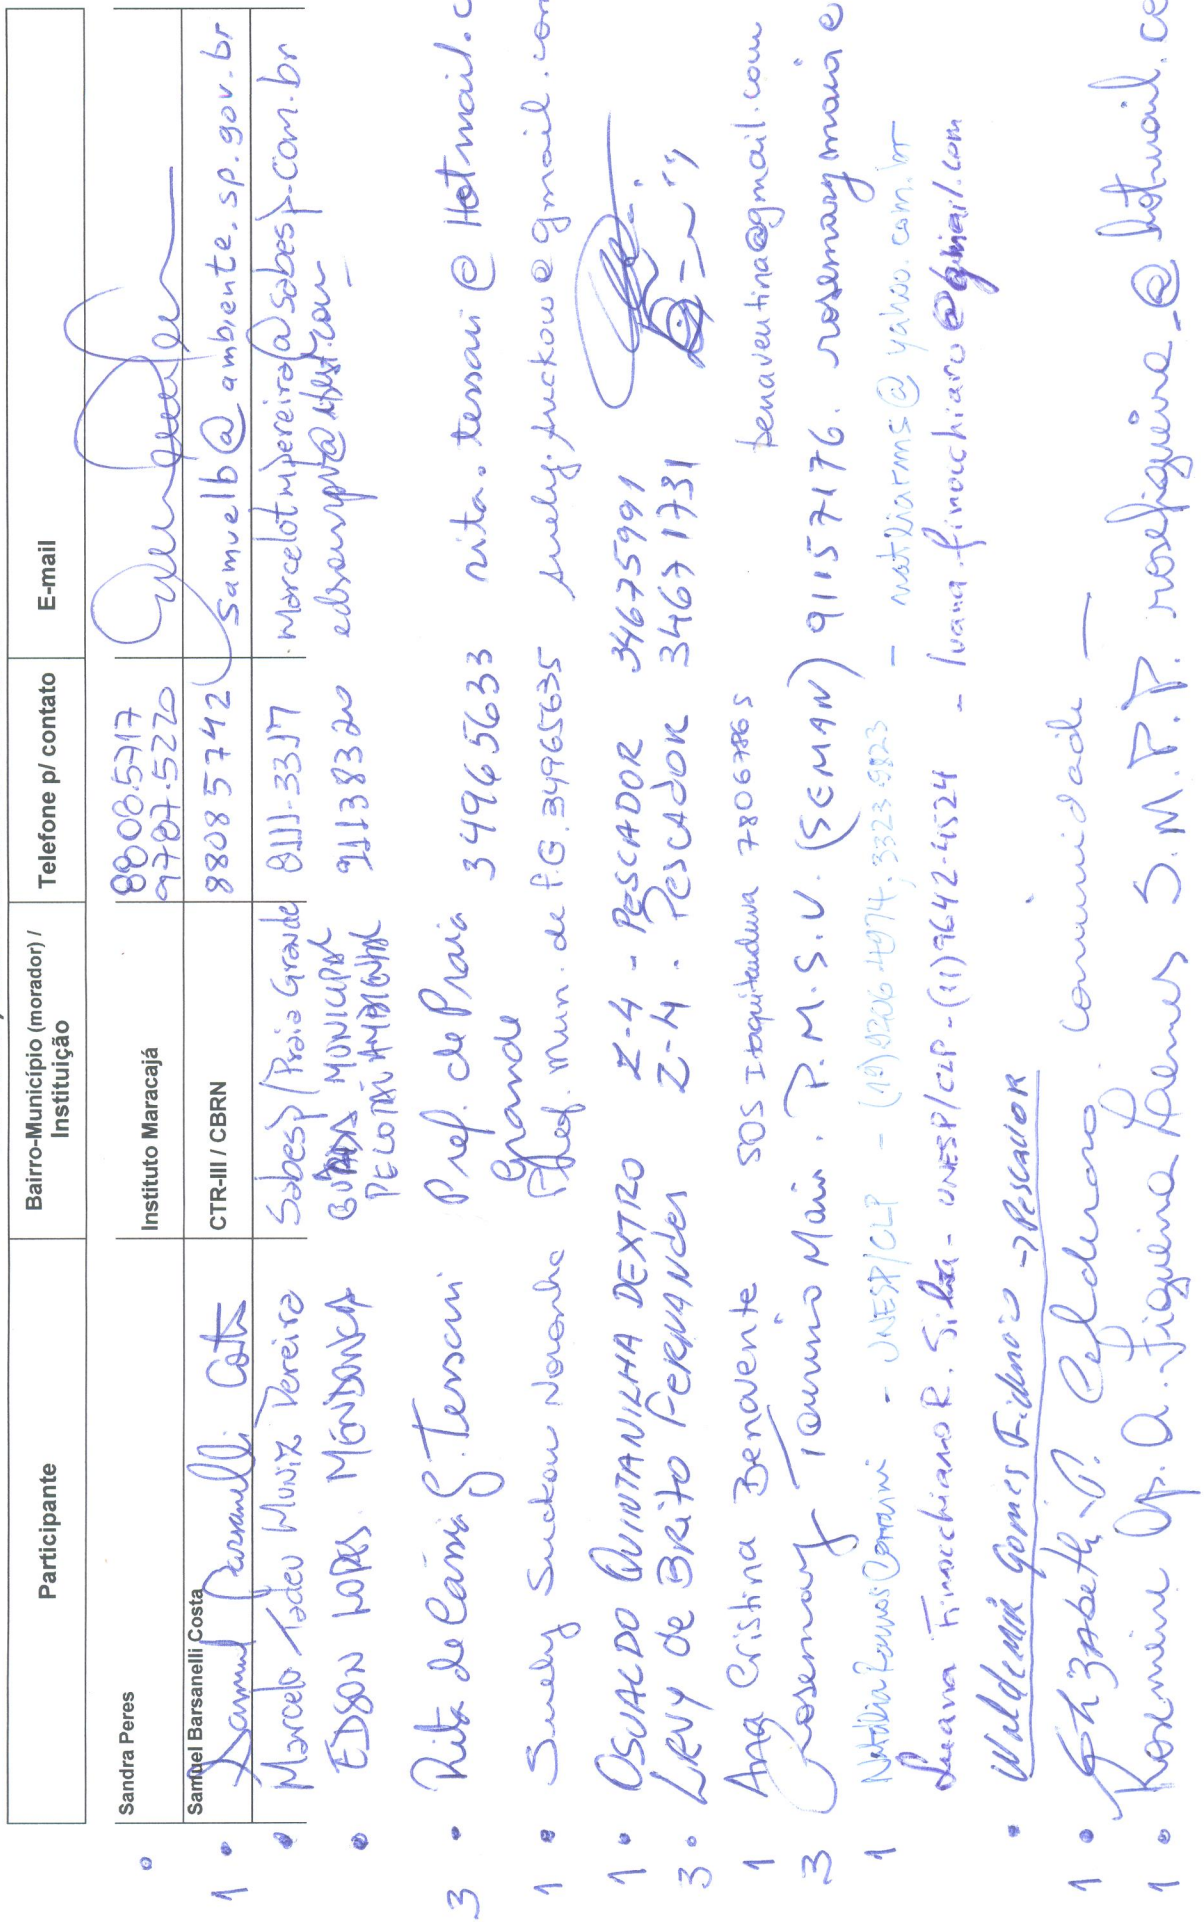 Participante Bairro-Município (morador) / Instituição Telefone p/ contato E-mail
Sandra Peres Instituto Maracajá 8808.5717
9787.5220
1 • Samuel Barsanelli Costa CTR-III / CBRN 88085742 samuelb@ambiente.sp.gov.br
Samuel Barsanelli Costa
• Marcelo Tadeu Muniz Pereira Sabesp/Praia Grande 8111-3317 marcelotmpereira@sabesp.com.br
• EDSON LOPES MENDONÇA GUARDA MUNICIPAL 91138320
PELOTÃO AMBIENTAL
3 • Rita de Cássia G. Tessari Pref. de Praia 34965633 rita.tessari@Hotmail.c
Grande
1 • Suely Suckow Noronha Pref. Mun. de P.G. 34965635 suely.suckow@gmail.com
1 • OSVALDO QUINTANILHA DEXTRO Z-4 - PESCADOR 34675991
3 • LEVY de BRITO FERNANDES Z-4 - PESCADOR 34671731
1 Ana Cristina Benavente SOS Itaquitanduva 78067865 benaventina@gmail.com
3 Rosemary Tourinho Maia. P.M.S.V. (SEMAM) 91157176. rosemarymaia@
1 - UNESP/CLP - (19) - @yahoo.com.br
Luana Finocchiaro R. Silva - UNESP/CLP - (11) 9642-4524 - luana.finocchiaro@gmail.com
• Waldemir Gomes → PESCADOR
1 • Elizabeth comunidade —
1 • Rosemeire Ap. A. Figueira S.M.P.P. rosefigueira_@hotmail.co